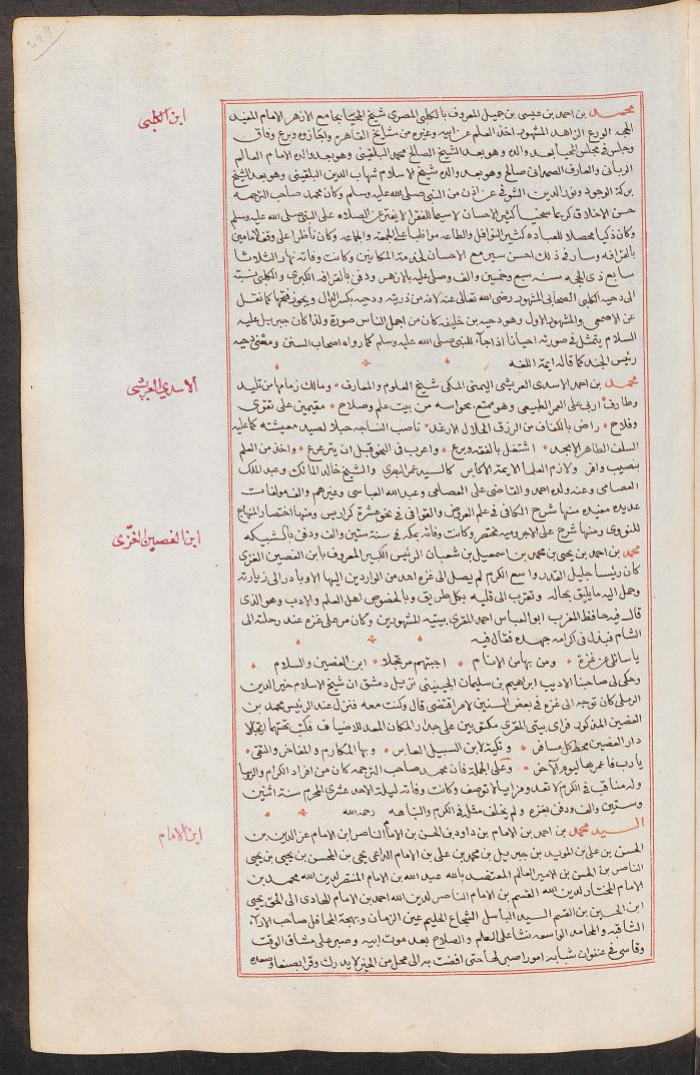 ٢٤٩
ابن الكلبي
محمد بن احمد بن عيسى بن جميل المعروف بالكلبي المصري شيخ المحيا بجامع الازهر الامام المفيد
الحجه الورع الزاهد المشهور اخذ العلم عن ابيه وغيره من مشايخ القاهره واجازوه وبرع وفاق
وجلس في مجلس المحيا بعد والده وهو بعد الشيخ الصالح محمد البلقيني وهو بعد والده الامام العالم
الرباني والعارف الصمداني صالح وهو بعد والده شيخ الاسلام شهاب الدين البلقيني وهو بعد الشيخ
بركة الوجود نور الدين الشوني عن اذن من النبي صلى الله عليه وسلم وكان محمد صاحب الترجمه
حسن الاخلاق كريما سخيا كثير الاحسان لا سيما للفقرا لا يفتر عن الصلاه على النبي صلى الله عليه وسلم
وكان ذكيا محصلا للعباده كثير النوافل والطاعه مواظبا على الجمعه والجماعه وكان ناظرا على وقف الامامين
بالقرافه وسار في ذلك احسن سير مع الاحسان لخدمة المكانين وكانت وفاته نهار الثلاثا
سابع ذي الحجه سنه سبع وخمسين والف وصلي عليه بالازهر ودفن بالقرافة الكبرى والكلبي نسبة
الى دحيه الكلبي الصحابي المشهور رضي الله تعالى عنه لانه من ذريته ودحيه بكسر الدال ويجوز فتحها كما نقل
عن الاصمعي والمشهور الاول وهو دحيه بن خليفه كان من اجمل الناس صورة ولذا كان جبريل عليه
السلام يتمثل في صورته احيانا اذا جاء للنبي صلى الله عليه وسلم كما رواه اصحاب السنن ومعنى دحيه
رئيس الجند كما قاله ايمة اللغه
الاسدي العريشي
محمد بن احمد الاسدي العريشي اليمني المكي شيخ العلوم والمعارف ومالك زمامها من تليد
وطارف اربى على العمر الطبيعي وهو ممتع بحواسه من بيت علم وصلاح مقيمين على تقوى
وفلاح راض بالكفاف من الرزق الحلال الارغد ناصب النساجه حبلا لصيد معيشته كما عليه
السلف الطاهر الامجد اشتغل بالفقه وبرع واعرب في النحو قبل ان يترعرع واخذ من العلم
بنصيب وافر ولازم العلما الايمة الاكابر كالسيد عمر البصري والشيخ خالد المالكي وعبد الملك
العصامي وعنه ولده احمد والقاضي على العصامي وعبد الله العباسي وغيرهم والف مولفات
عديده مفيده منها شرح الكافي في علم العروض والقوافي في نحو عشرة كراريس ومنها اختصار المنهاج
للنووي ومنها شرح على الاجروميه مختصر وكانت وفاته بمكه في سنة ستين والف ودفن بالشبيكه
ابن الغصين الغزي
محمد بن احمد بن يحيى بن محمد بن اسمعيل بن شعبان الرئيس الكبير المعروف بابن الغصين الغزي
كان رئيسا جليل القدر واسع الكرم لم يصل الى غزه احد من الواردين اليها الا وبادر الى زيارته
وحمل اليه ما يليق بحاله وتقرب الى قلبه بكل طريق وبالخصوص اهل العلم والادب وهو الذي
قال فيه حافظ المغرب ابو العباس احمد المقري بيتيه المشهورين وكان مر على غزه عند رحلته الى
الشام فبذل في اكرامه جهده فقال فيه
يا سائلي عن غزة ومن بها من الانام اجبتهم مرتجلا ابن الغصين والسلام
وحكى لي صاحبنا الاديب ابراهيم بن سليمان الجينيني نزيل دمشق ان شيخ الاسلام خير الدين
الرملي كان توجه الى غزه في بعض السنين لامر اقتضى قال وكنت معه فنزل عند الرئيس محمد بن
الغصين المذكور فراى بيتي المقري مكتوبين على جدار المكان المعد للاضياف فكتب تحتهما ارتجالا
دار الغصين محط كل مسافر وتكية لابن السبيل العابر وبها المكارم والمفاخر والتقى
يا رب فاعمرها ليوم الآخر وعلى الجملة فان محمد صاحب الترجمه كان من افراد الكرام والبها
وله مناقب في الكرم لا تعد ومزايا لا توصف وكانت وفاته ليلة الاحد عشري المحرم سنة اثنين
وستين والف ودفن بغزه ولم يخلف مثله في الكرم والنباهه رحمه الله
ابن الامام
السيد محمد بن احمد بن الامام بن داود بن الحسن بن الامام الناصر ابن الامام عز الدين بن
الحسن بن علي بن المويد بن جبريل بن محمد بن علي بن الامام الداعي يحيى بن المحسن بن يحيى بن يحيى
الناصر بن الحسن بن الامير العالم المعتضد بالله عبد الله بن الامام المنتصر لدين الله محمد بن
الامام المختار لدين الله القسم بن الامام الناصر لدين الله احمد بن الامام الهادى الى الحق يحيى
ابن الحسين بن القسم السيد الباسل الشجاع الحليم عين الزمان وبهجة المحافل صاحب الاراء
الثاقبه والمحامد الواسعه نشا على العلم والصلاح بعد موت ابيه وصبر على مشاق الوقت
وقاسى في عنفوان شبابه امورا صبر لها حتى افضت به الى محل من الخير لا يدرك وقرا بصنعا وصعده